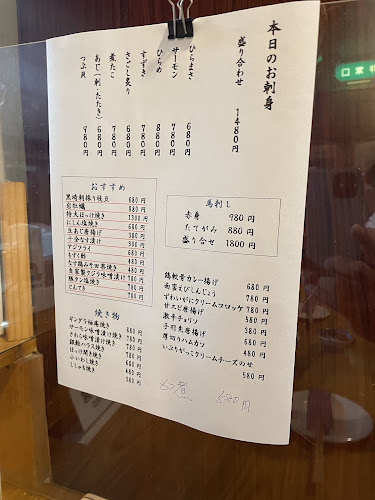 本日のお刺身
盛り合わせ 1480円
ひらまさ 680円
サーモン 780円
ひらめ 880円
すずき 780円
さごし炙り 780円
煮たこ 680円
あじ(刺・たたき) 780円
つぶ貝 980円
おすすめ
黒崎朝採り枝豆 680円
岩牡蠣 980円
特大ほっけ焼き 1300円
にしん塩焼き 680円
豆あじ唐揚げ
十全なす漬け
アジフライ
もずく酢
なす鶏みそ田楽焼き
自家製クジラ味噌漬け 780円
豚タン塩焼き 780円
とんてき 780円
馬刺し
赤身 980円
たてがみ 880円
盛り合せ 1800円
焼き物
ギンダラ柚庵焼き
サーモン味噌漬け焼き
さわら味噌漬け焼き 780円
銀鮭ハラス焼き 780円
ほっけ開き焼き
ふぐいわし焼き
ししゃも焼き
鶏軟骨カレー揚げ 680円
南蛮えびしんじょう
ずわいがにクリームコロッケ 780円
甘エビ唐揚げ 580円
激辛チョリソ 780円
手羽先唐揚げ 580円
厚切りハムカツ 480円
いぶりがっこクリームチーズのせ 580円
もつ煮 580円
口常非